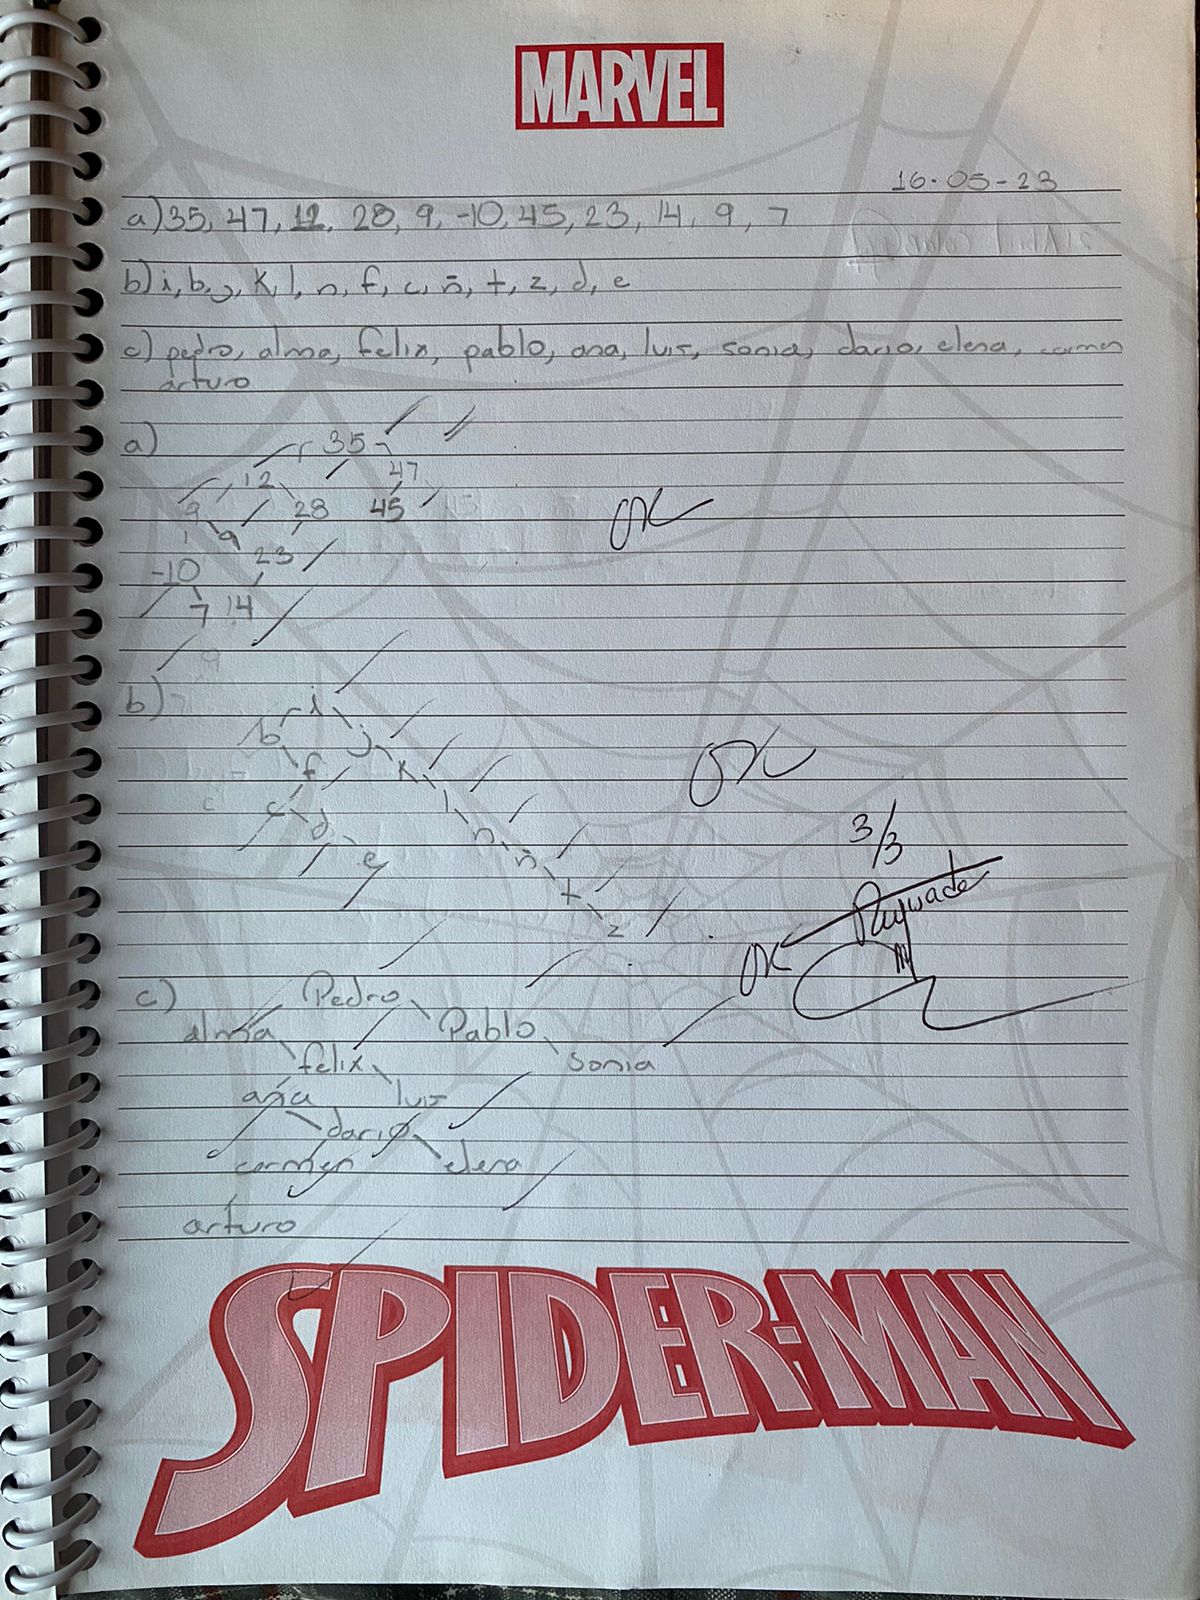 MARVEL
16-05-23
a) 35, 47, 12, 28, 9, -10, 45, 23, 14, 9, 7
b) i, b, j, k, l, n, f, c, ñ, t, z, d, e
c) pedro, alma, felix, pablo, ana, luis, sonia, dario, elena, carmen
arturo
a)
35
12 47
9 28 45
9 23
-10
7 14
OK
b)
i
b j
f k
c l
d n
e ñ
t
z
OK
3/3
OK
c) Pedro
alma Pablo
felix sonia
ana luis
dario
carmen elena
arturo
SPIDER-MAN